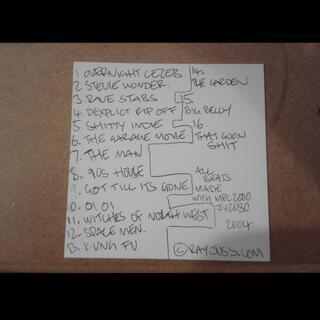 1 OVERNIGHT CELEB.
2 STEVIE WONDER.
3. RAVE STABS
4. DEXPLICIT RIP OFF
5. SHITTY INDIE
6. THE GARAGE MOVIE.
7. THE MAN
8. 90s HOUSE
9. GOT TILL ITS GONE
10. 01 01
11. WITCHES OF NORTH WEST
12. SPACE MEN.
13. KUNG FU
14.
THE GARDEN
15.
BIG BELLY
16
THAT GOON
SHIT
ALL
BEATS
MADE
WITH MPC2000
JV2080
2004.
© RAYJUSS.COM